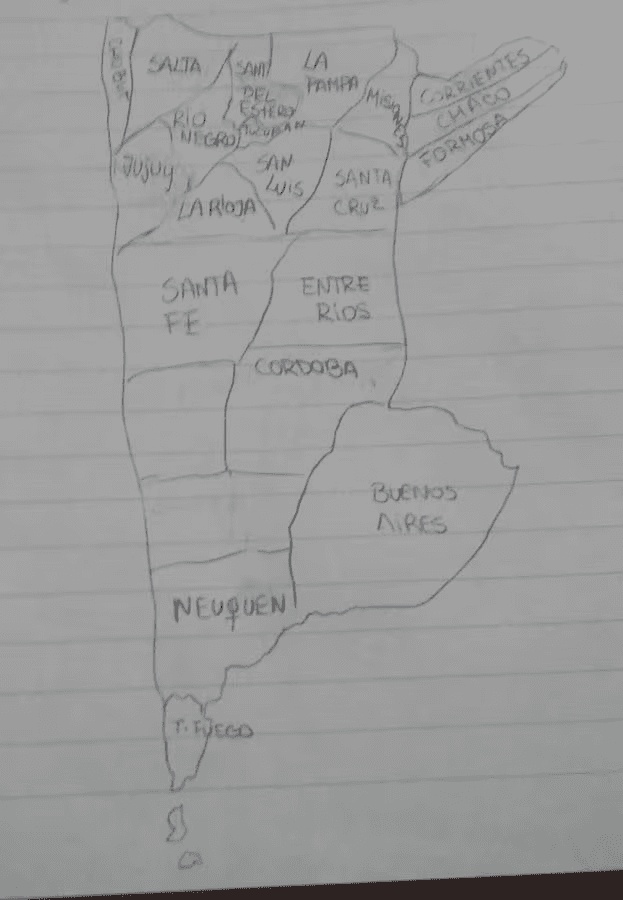 SALTA
SANT
DEL
ESTERO
LA
PAMPA
MISIONES
CORRIENTES
CHACO
FORMOSA
RIO
NEGRO
TUCUMAN
JUJUY
SAN
LUIS
LA RIOJA
SANTA
CRUZ
SANTA
FE
ENTRE
RIOS
CORDOBA
BUENOS
AIRES
NEUQUEN
T. FUEGO